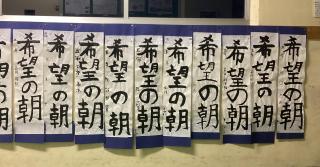 希望の朝
希望の朝
希望の朝
希望の朝
希望の朝
希望の朝
希望の朝
希望の朝
希望の朝
希望の朝
の朝